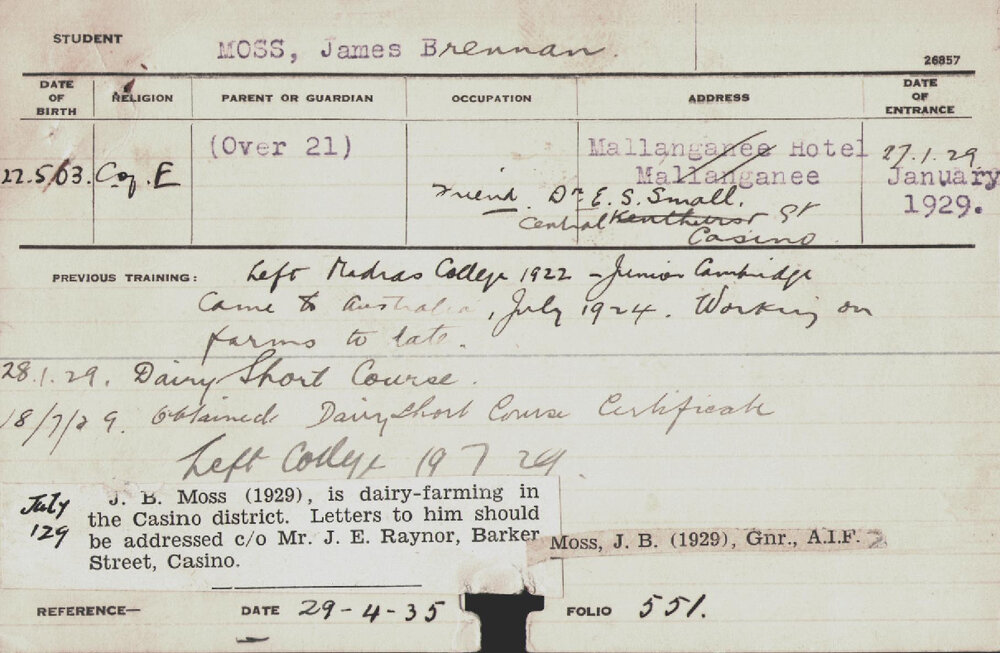 STUDENT MOSS, James Brennan.
26857
DATE OF BIRTH RELIGION PARENT OR GUARDIAN OCCUPATION ADDRESS DATE OF ENTRANCE
(Over 21) Mallanganee Hotel 27.1.29
22.5/03. C of E Mallanganee January
Friend Dr E. S. Small. 1929.
Central Kenthurst St
Casino
PREVIOUS TRAINING: Left Madras College 1922 – Junior Cambridge
Came to Australia, July 1924. Working on
farms to late.
28.1.29. Dairy Short Course.
18/7/29. Obtained Dairy Short Course Certificate
Left College 19 7 29.
July J. B. Moss (1929), is dairy-farming in
129 the Casino district. Letters to him should
be addressed c/o Mr. J. E. Raynor, Barker
Street, Casino.
Moss, J. B. (1929), Gnr., A.I.F.
REFERENCE— DATE 29-4-35 FOLIO 551.